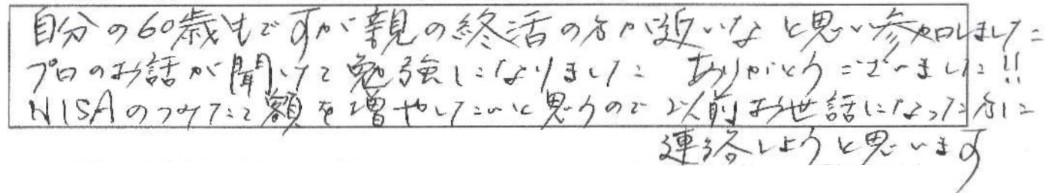 自分の60歳もですが親の終活の方が近いなと思い参加しました
プロのお話が聞けて勉強になりました ありがとうございました!!
NISAのつみたて額を増やしたいと思うので以前お世話になった方に
連絡しようと思います